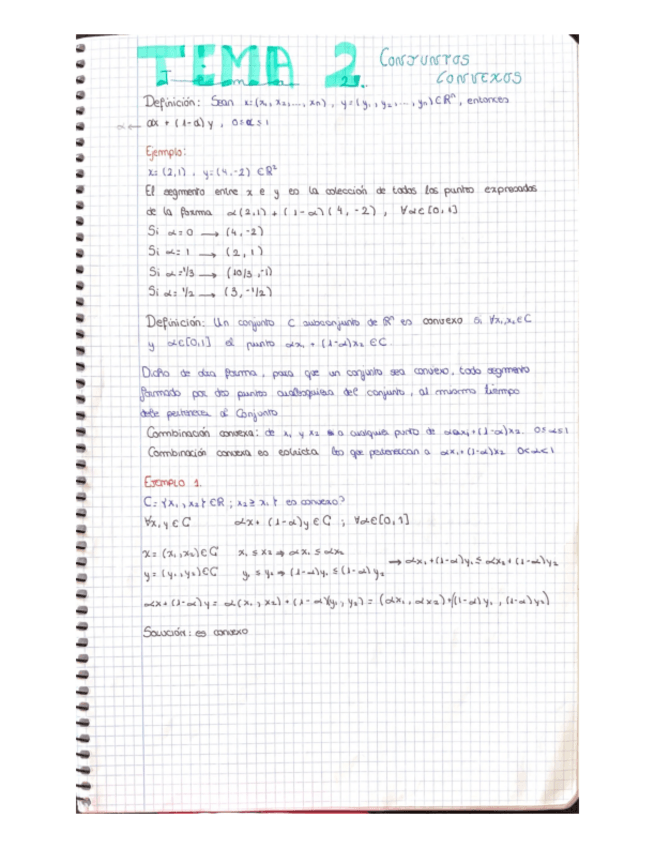 TEMA 2 CONJUNTOS
CONVEXOS
Definición: Sean x=(x₁, x₂, ..., xₙ), y=(y₁, y₂, ..., yₙ) ∈ Rⁿ, entonces
αx + (1-α)y, 0≤α≤1
Ejemplo:
x=(2,1), y=(4,-2) ∈ R²
El segmento entre x e y es la colección de todos los puntos expresados
de la forma α(2,1) + (1-α)(4,-2), ∀α∈[0,1]
Si α=0 → (4,-2)
Si α=1 → (2,1)
Si α=1/3 → (10/3,-1)
Si α=1/2 → (3,-1/2)
Definición: Un conjunto C subconjunto de Rⁿ es convexo si ∀x₁,x₂∈C
y α∈[0,1] el punto αx₁ + (1-α)x₂ ∈ C
Dicho de otra forma, para que un conjunto sea convexo, todo segmento
formado por dos puntos cualesquiera del conjunto, al mismo tiempo
debe pertenecer al Conjunto
Combinación convexa: de x₁ y x₂ a cualquier punto de αx₁+(1-α)x₂ 0≤α≤1
Combinación convexa es estricta los que pertenezcan a αx₁+(1-α)x₂ 0<α<1
EJEMPLO 1.
C={x₁,x₂} ∈R; x₂≥x₁} es convexo?
∀x,y∈C αx+(1-α)y∈C; ∀α∈[0,1]
x=(x₁,x₂)∈C x₁≤x₂ ⇒ αx₁≤αx₂
y=(y₁,y₂)∈C y₁≤y₂ ⇒ (1-α)y₁≤(1-α)y₂ → αx₁+(1-α)y₁≤αx₂+(1-α)y₂
αx+(1-α)y = α(x₁,x₂)+(1-α)(y₁,y₂) = (αx₁,αx₂)+((1-α)y₁,(1-α)y₂)
Solución: es convexo